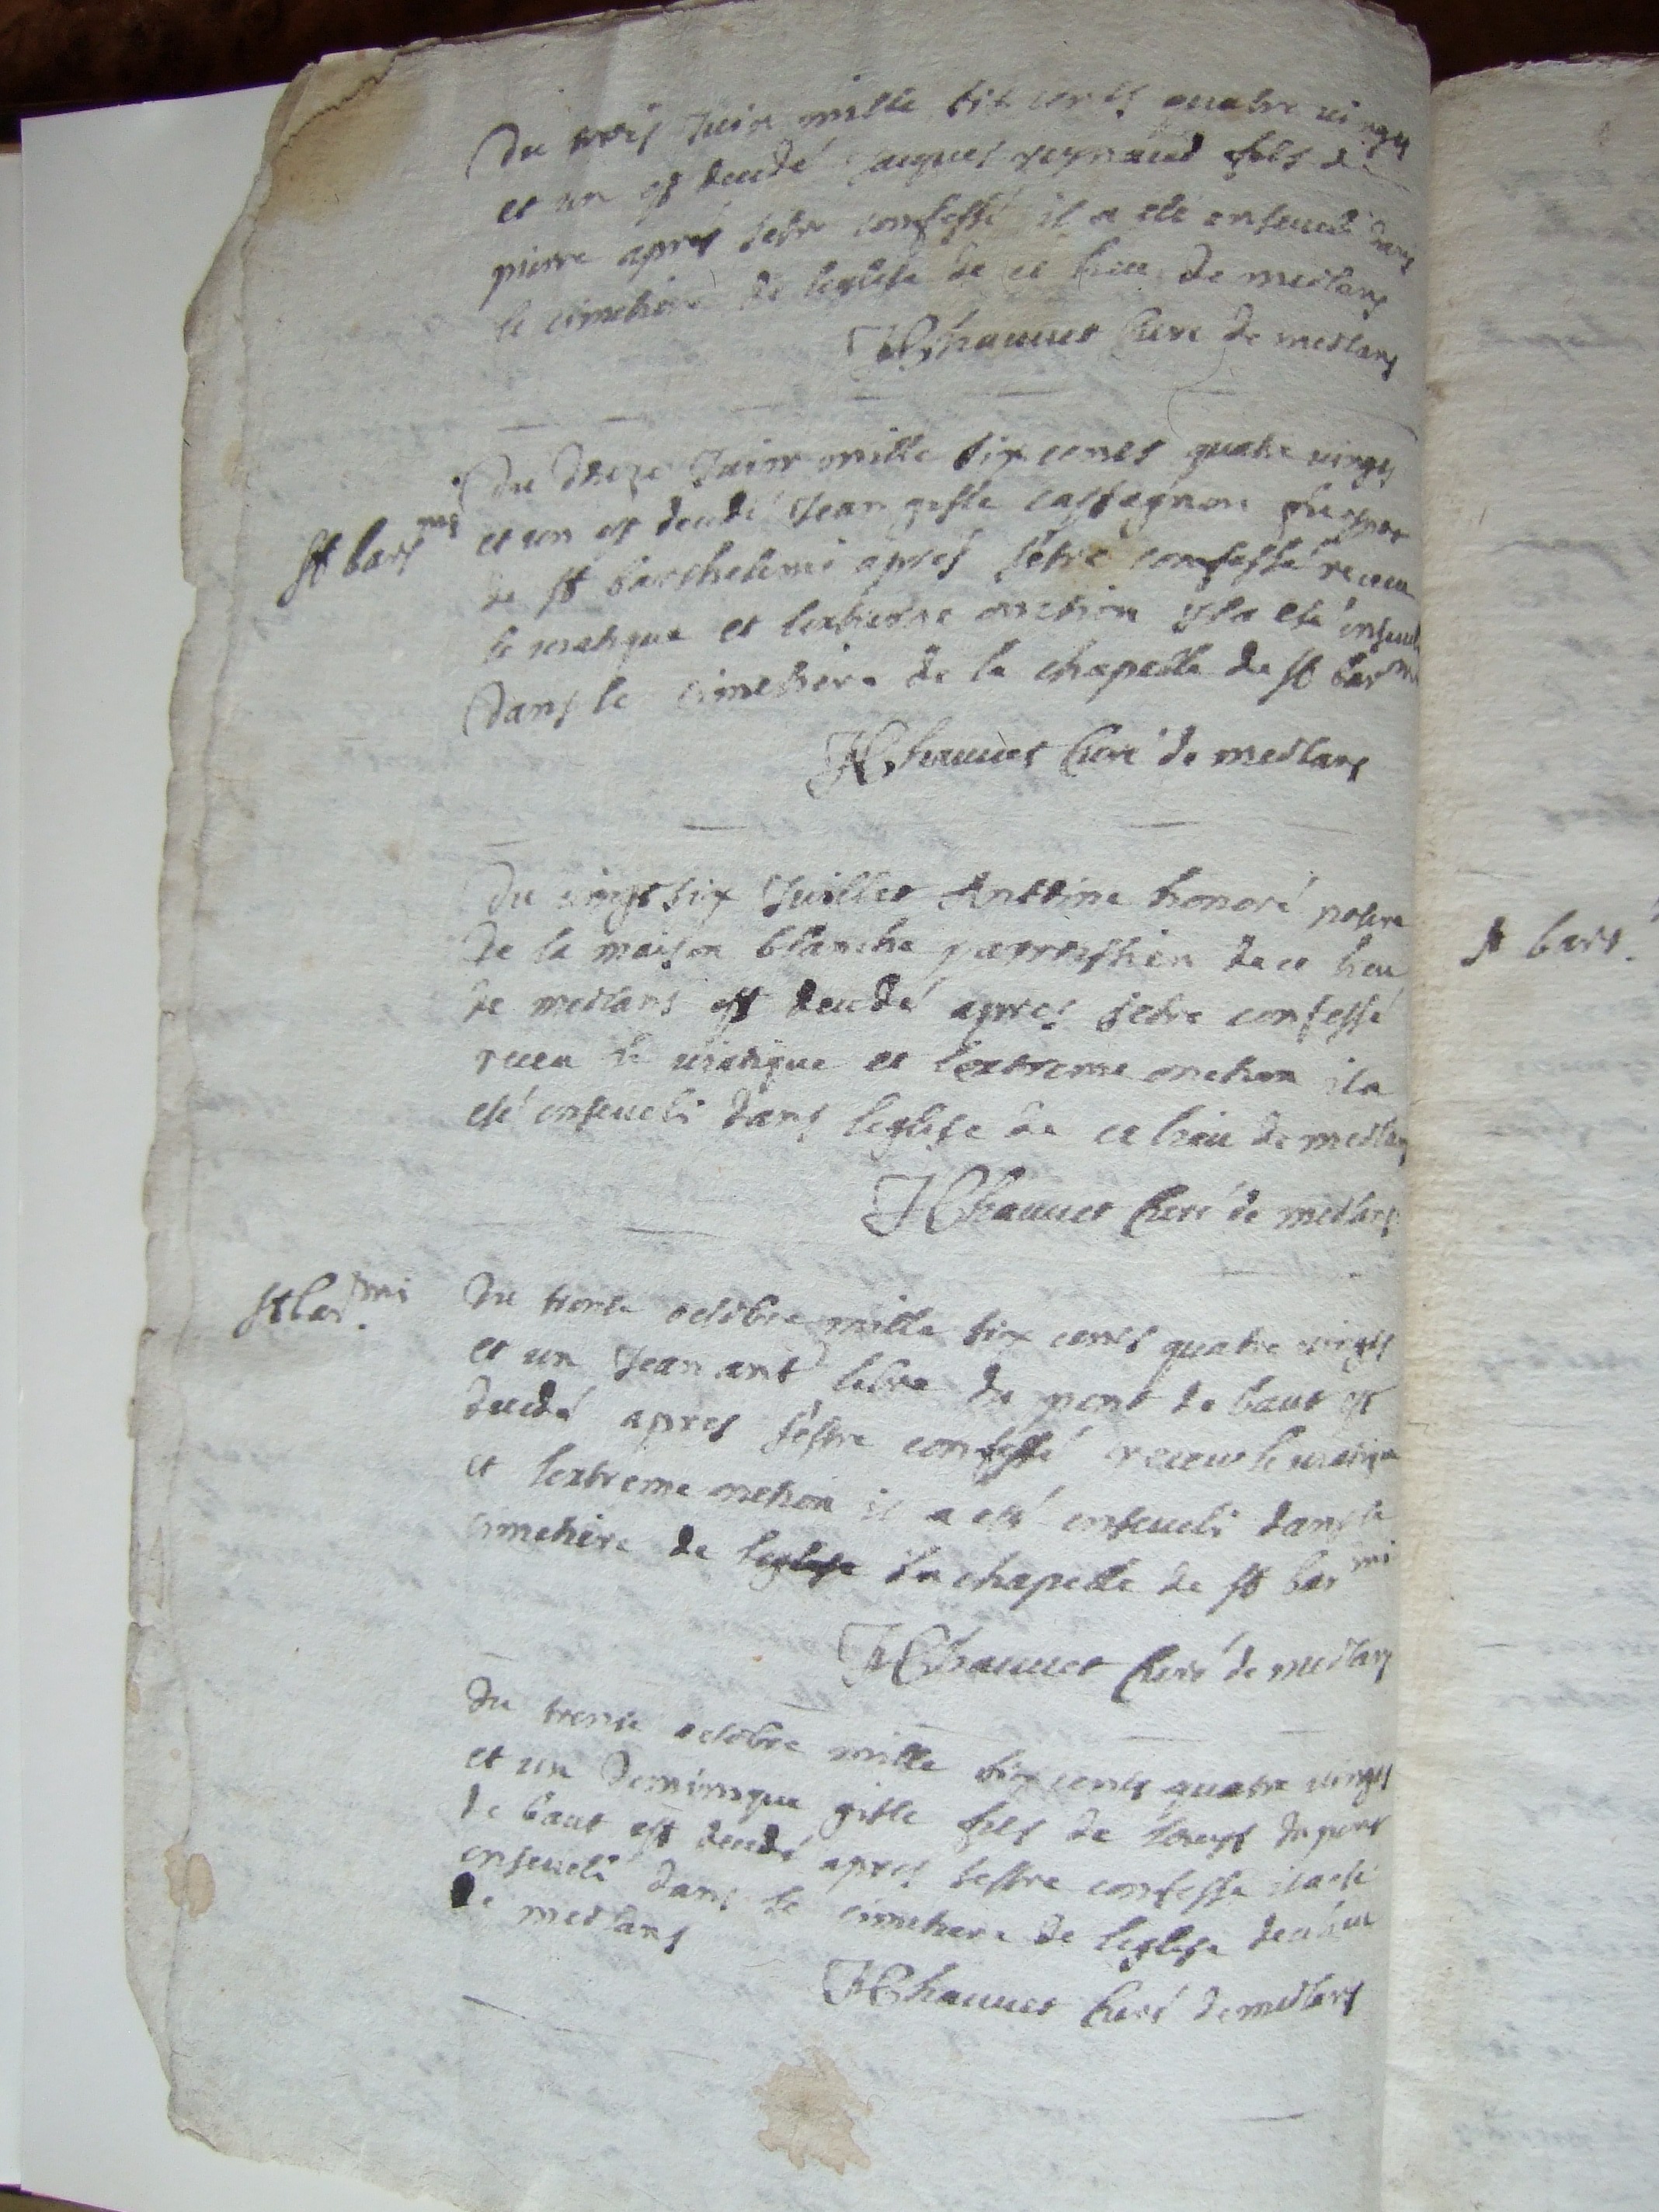 Du trois Juin mille six cents quatre vingts
et un est decedé Jaques reynaud fils de
pierre apres setre confessé il a eté enseveli dans
le cimetiere de leglise de ce lieu de meolans
JChauvet Curé de meolans
St bar mi
Du treze Juin mille six cents quatre vingts
et un est decedé Jean gesle castagnon
de St barthelemi apres setre confessé receu
le viatique et lextreme onction il a esté enseveli
dans le cimetiere de la chapelle de St bar mi
JChauvet Curé de meolans
Du vingt six Juillet Anttoine honoré notere
de la maison blanche parroissien de ce lieu
de meolans est decedé apres setre confessé
receu le viatique et lextreme onction il a
esté enseveli dans leglise de ce lieu de meolans
JChauvet Curé de meolans
St bar mi
Du trente octobre mille six cents quatre vingts
et un Jean ant lebre du pont de baut est
decedé apres sestre confessé receu le viatique
et lextreme onction il a esté enseveli dans le
cimetiere de leglise la chapelle de St bar mi
JChauvet Curé de meolans
Du trente octobre mille six cents quatre vingts
et un Dominique gille fils de Louys du pont
de baut est decedé apres sestre confesse il a esté
enseveli dans le cimetiere de leglise de ce lieu
de meolans
JChauvet Curé de meolans
St bart.